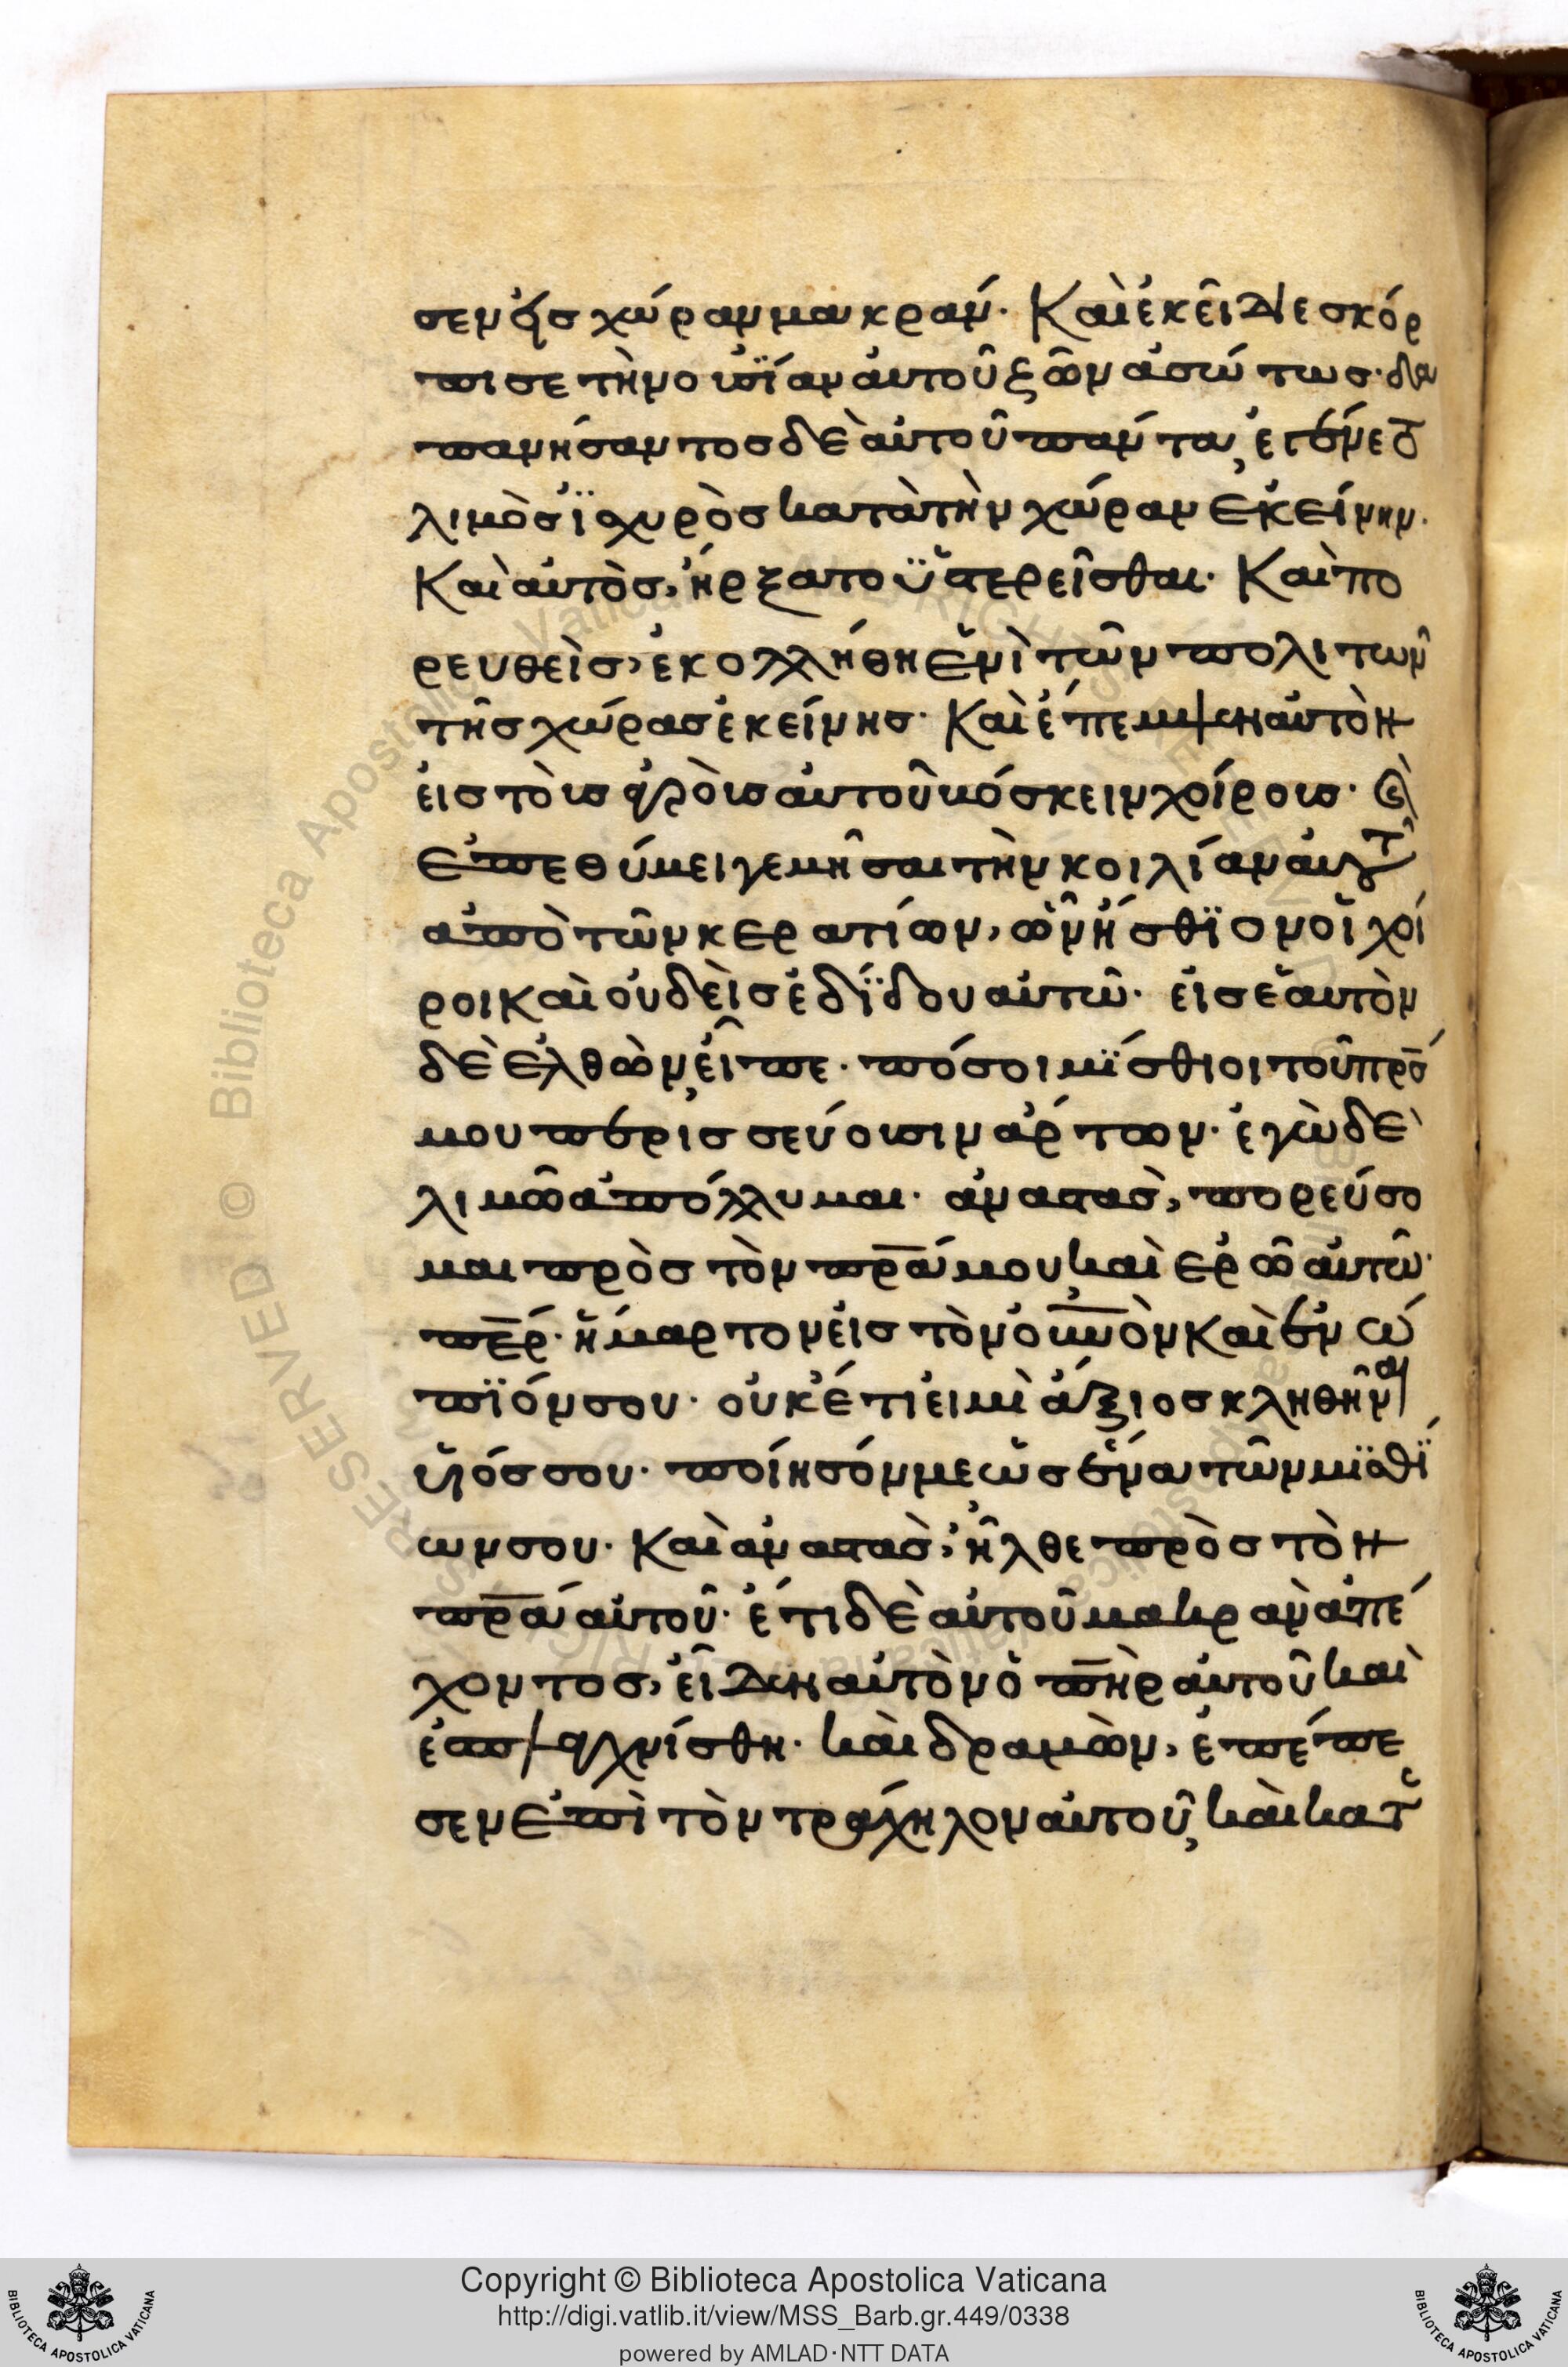 σεν εἰς χώραν μακράν· Καὶ ἐκεῖ διεσκόρ
πισε τὴν οὐσΐαν αὐτοῦ ζῶν ἀσώτως· δα
πανήσαντος δὲ αὐτοῦ πάντα, ἐγένετο
λιμὸς ἰσχυρὸς κατὰ τὴν χώραν ἐκείνην·
Καὶ αὐτὸς, ἤρξατο ὑστερεῖσθαι· Καὶ πο
ρευθεὶς, ἐκολλήθη ἑνὶ τῶν πολιτῶν
τῆς χώρας ἐκείνης· Καὶ ἔπεμψεν αὐτὸν
εἰς τοὺς ἀγροὺς αὐτοῦ βόσκειν χοίρους· Καὶ
ἐπεθύμει γεμῆσαι τὴν κοιλίαν αὐτοῦ
ἀπὸ τῶν κερατίων, ὧν ἤσθϊον οἱ χοί
ροι καὶ οὐδεὶς ἐδΐδου αὐτῶ· εἰς ἑαυτὸν
δὲ ἐλθὼν, εἶπε· πόσοι μΐσθιοι τοῦ πρσ
μου περισσεύουσιν ἄρτων· ἐγὼ δὲ
λιμῶ ἀπόλλυμαι· ἀναστὰς, πορεύσο
μαι πρὸς τὸν πρα μου, καὶ ἐρῶ αὐτῶ·
περ· ἥμαρτον εἰς τὸν οὐνὸν καὶ ἐνώ
πϊόν σου· οὐκέτι εἰμὶ ἄξιος κληθῆναι
ὑιός σου· ποίησόν με ὡς ἕνα τῶν μϊσθΐ
ων σου· Καὶ ἀναστὰς, ἦλθε πρὸς τὸν
πρα αὐτοῦ· ἔτι δὲ αὐτοῦ μακρὰν ἀπέ
χοντος, εἶδεν αὐτὸν ὁ πηρ αὐτοῦ καὶ
ἐσπλαγχνίσθη· καὶ δραμὼν, ἐπέπε
σεν ἐπὶ τὸν τράχηλον αὐτοῦ, καὶ κατε
Copyright © Biblioteca Apostolica Vaticana
http://digi.vatlib.it/view/MSS_Barb.gr.449/0338
powered by AMLAD·NTT DATA